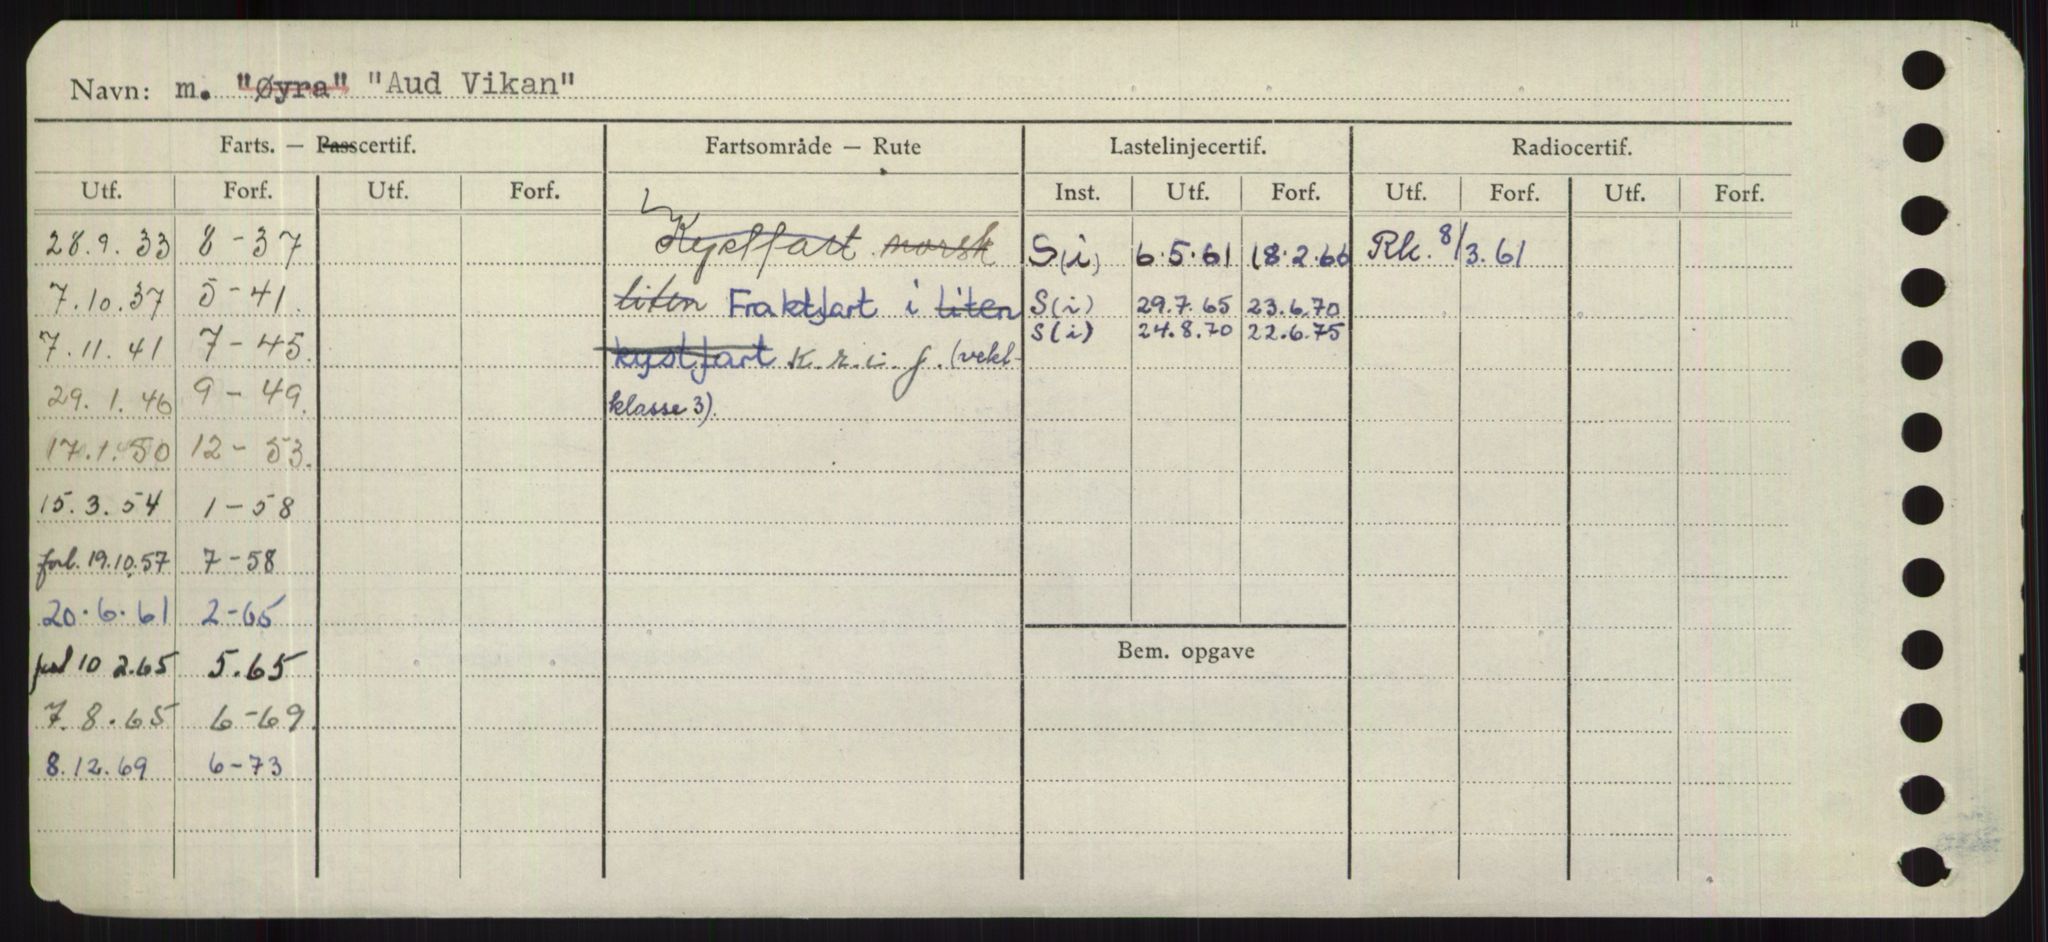 Navn: m. "Øyra" "Aud Vikan"
Farts. — Passcertif. Fartsområde — Rute Lastelinjecertif. Radiocertif.
Utf. Forf. Utf. Forf. Inst. Utf. Forf. Utf. Forf. Utf. Forf.
28.9.33 8-37 Kystfart norsk S(i) 6.5.61 18.2.66 Rk. 8/3.61
7.10.37 5-41. liten Fraktfart i liten S(i) 29.7.65 23.6.70
S(i) 24.8.70 22.6.75
7.11.41 7-45. kystfart K.r.i.f. (vekl-
29.1.46 9-49. klasse 3).
17.1.50 12-53.
15.3.54 1-58
forl. 19.10.57 7-58
20.6.61 2-65
10 2.65 5.65
Bem. opgave
7.8.65 6-69.
8.12.69 6-73